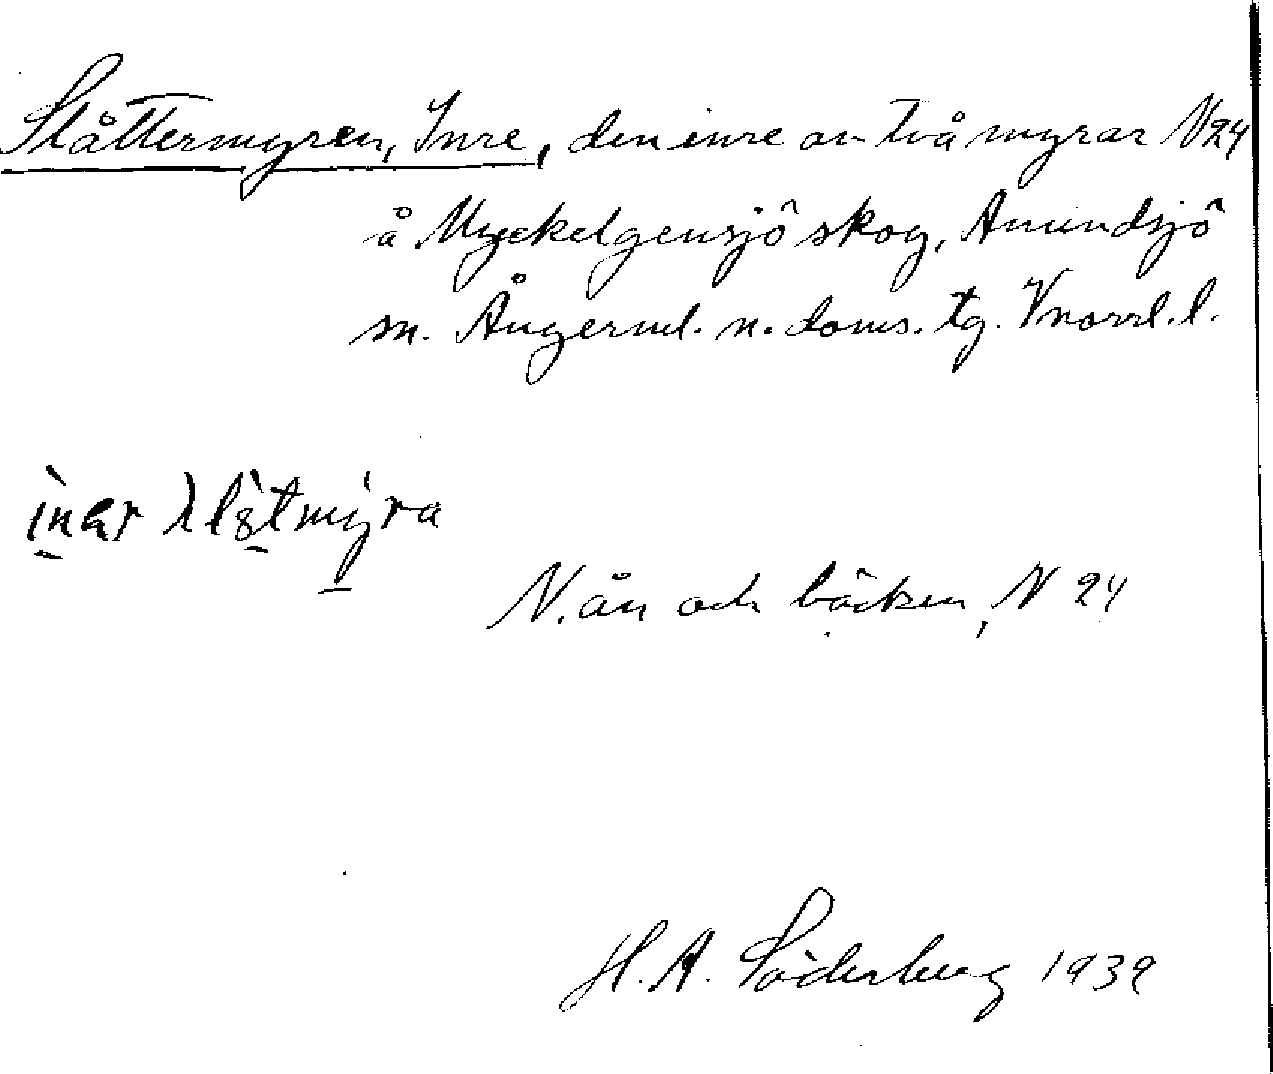 Slåttermyren, Inre, den inre av två myrar N24
å Myckelgensjö skog, Anundsjö
sn. Ångerml. n. doms. tg. Vnorrl. l.
N. ån och bäcken, N 24
H. A. Söderberg 1939